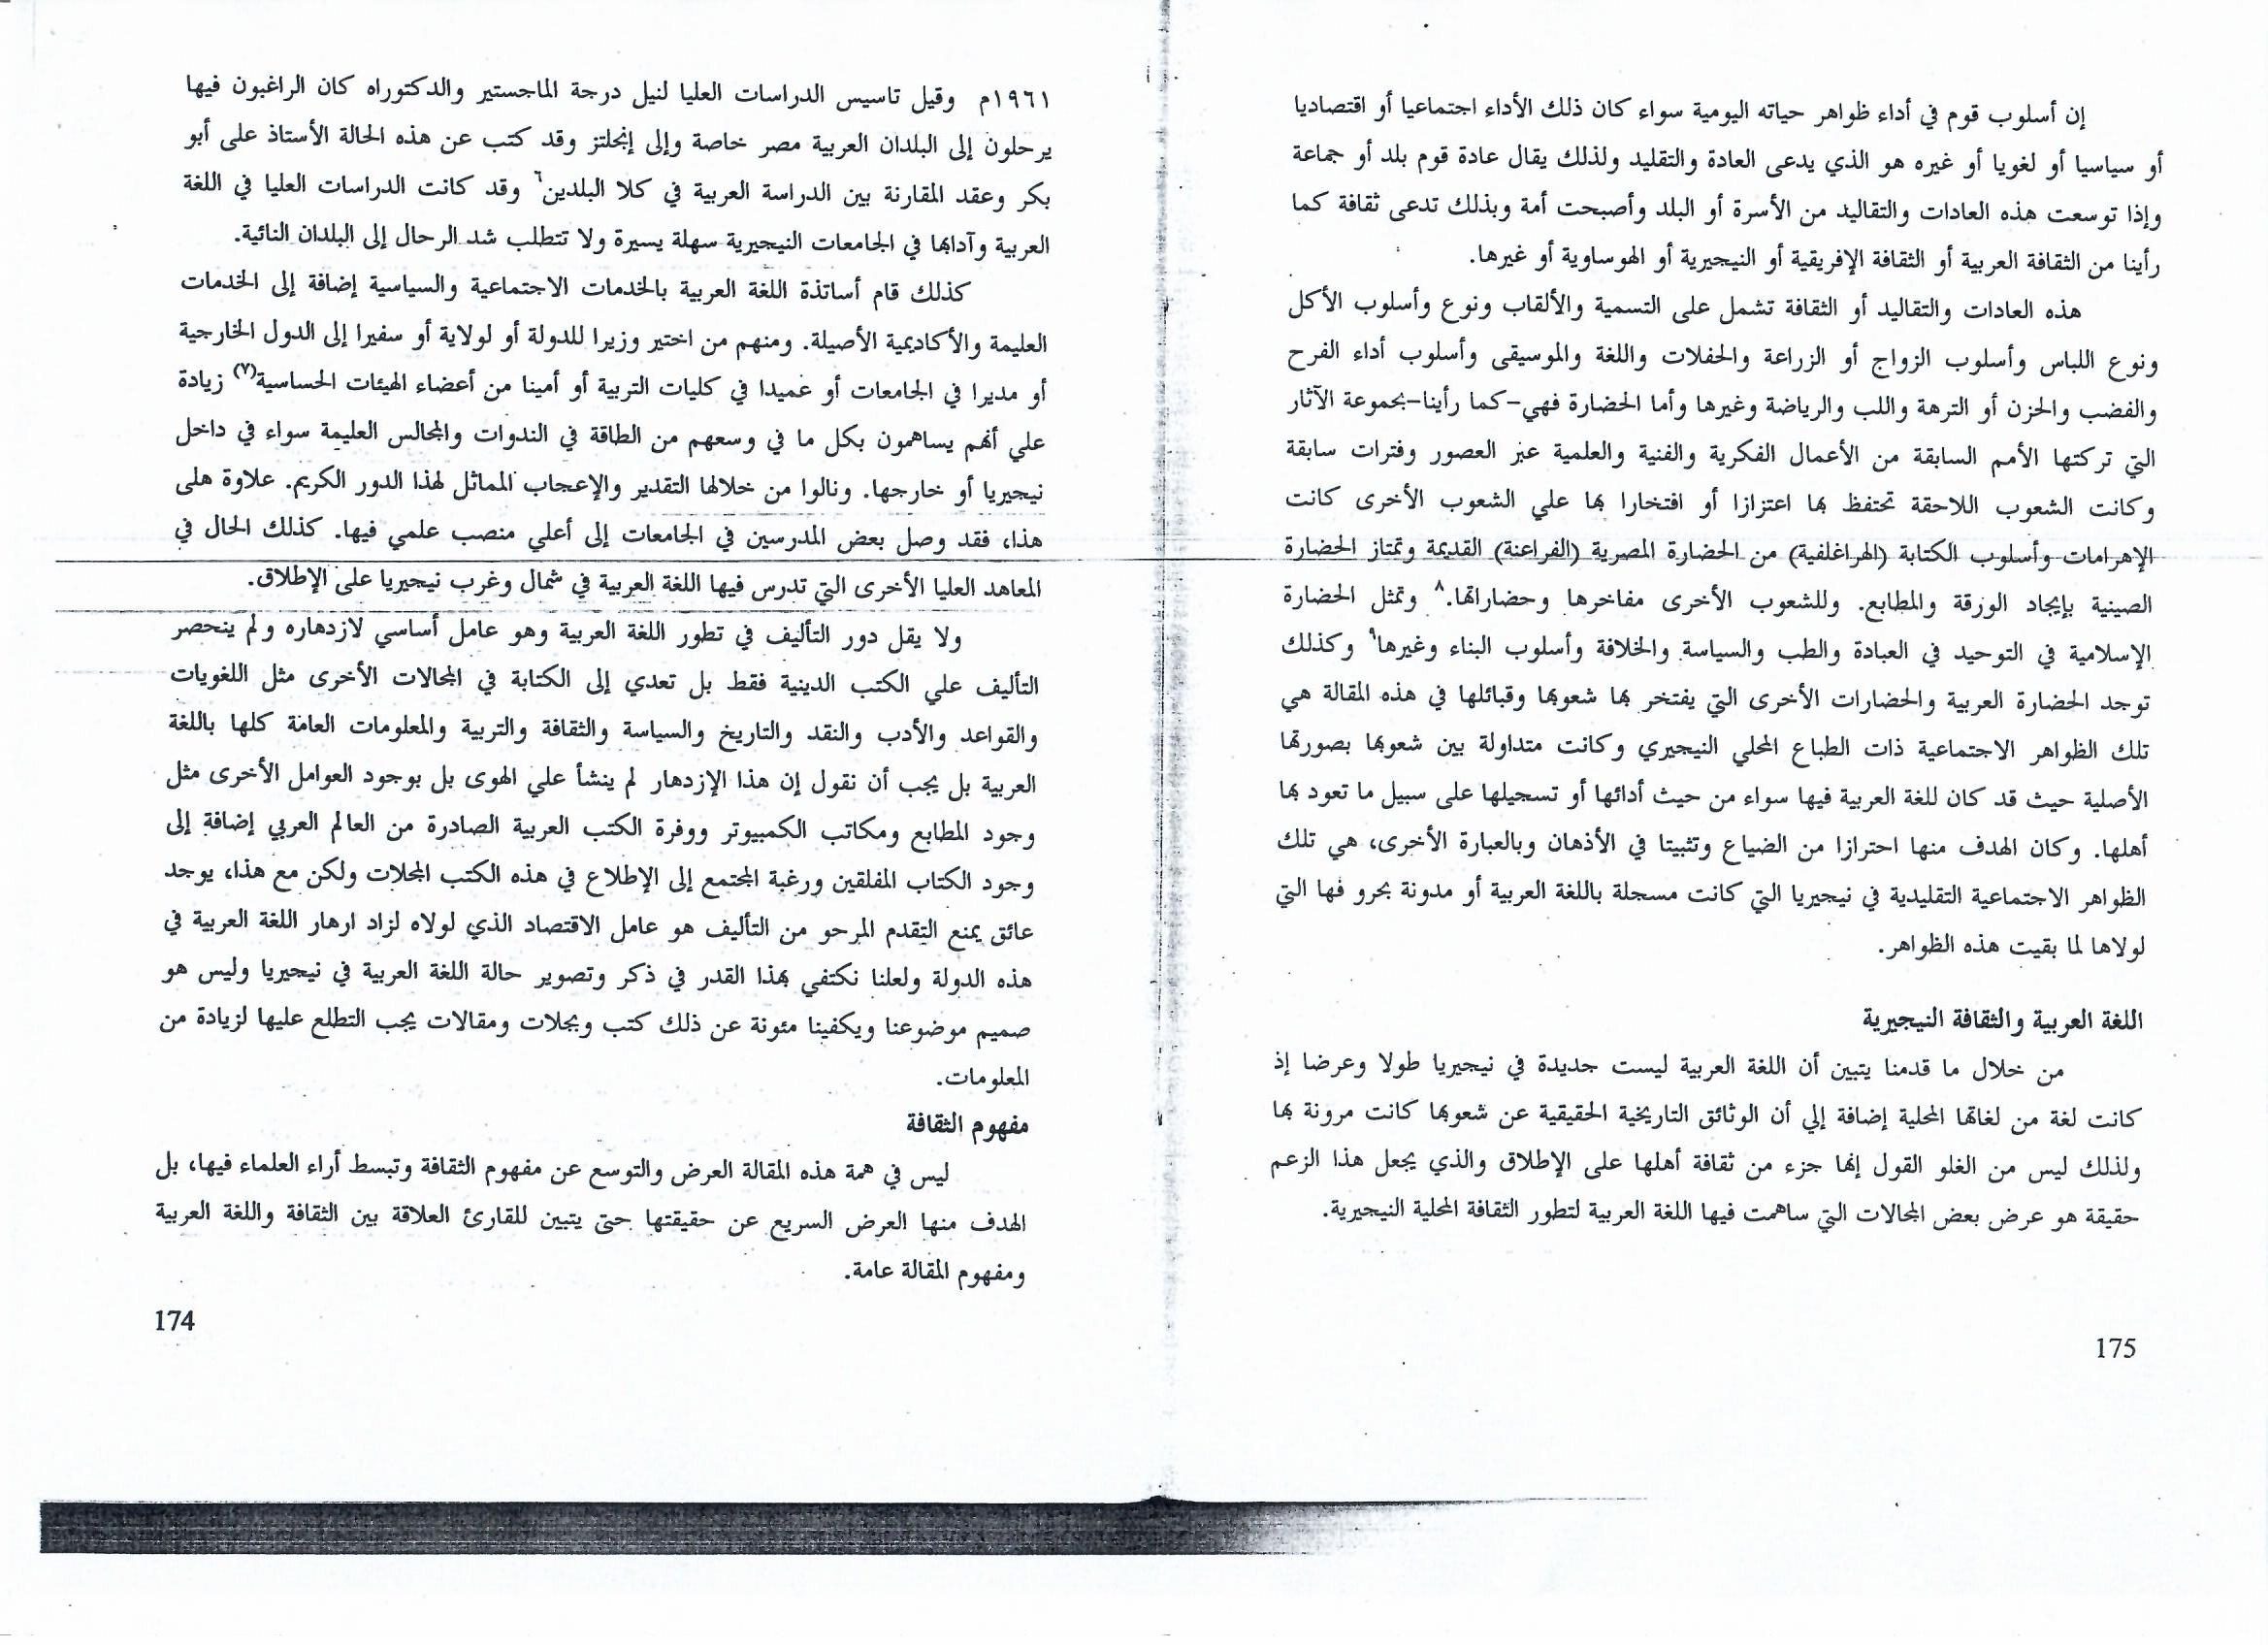 ١٩٦١م وقيل تاسيس الدراسات العليا لنيل درجة الماجستير والدكتوراه كان الراغبون فيها
يرحلون إلى البلدان العربية مصر خاصة وإلى إنجلتز وقد كتب عن هذه الحالة الأستاذ على أبو
بكر وعقد المقارنة بين الدراسة العربية في كلا البلدين٦ وقد كانت الدراسات العليا في اللغة
العربية وآدابها في الجامعات النيجيرية سهلة يسيرة ولا تتطلب شد الرحال إلى البلدان النائية.
كذلك قام أساتذة اللغة العربية بالخدمات الاجتماعية والسياسية إضافة إلى الخدمات
العليمة والأكاديمية الأصيلة. ومنهم من اختير وزيرا للدولة أو لولاية أو سفيرا إلى الدول الخارجية
أو مديرا في الجامعات أو عميدا في كليات التربية أو أمينا من أعضاء الهيئات الحساسية(٧) زيادة
علي أنهم يساهمون بكل ما في وسعهم من الطاقة في الندوات والمجالس العليمة سواء في داخل
نيجيريا أو خارجها. ونالوا من خلالها التقدير والإعجاب المماثل لهذا الدور الكريم. علاوة هلى
هذا، فقد وصل بعض المدرسين في الجامعات إلى أعلي منصب علمي فيها. كذلك الحال في
المعاهد العليا الأخرى التي تدرس فيها اللغة العربية في شمال وغرب نيجيريا على الإطلاق.
ولا يقل دور التأليف في تطور اللغة العربية وهو عامل أساسي لازدهاره ولم ينحصر
التأليف علي الكتب الدينية فقط بل تعدي إلى الكتابة في المجالات الأخرى مثل اللغويات
والقواعد والأدب والنقد والتاريخ والسياسة والثقافة والتربية والمعلومات العامة كلها باللغة
العربية بل يجب أن نقول إن هذا الإزدهار لم ينشأ علي الهوى بل بوجود العوامل الأخرى مثل
وجود المطابع ومكاتب الكمبيوتر ووفرة الكتب العربية الصادرة من العالم العربي إضافة إلى
وجود الكتاب المفلقين ورغبة المجتمع إلى الإطلاع في هذه الكتب المجلات ولكن مع هذا، يوجد
عائق يمنع التقدم المرحو من التأليف هو عامل الاقتصاد الذي لولاه لزاد ارهار اللغة العربية في
هذه الدولة ولعلنا نكتفي بهذا القدر في ذكر وتصوير حالة اللغة العربية في نيجيريا وليس هو
صميم موضوعنا ويكفينا مئونة عن ذلك كتب ومجلات ومقالات يجب التطلع عليها لزيادة من
المعلومات.
مفهوم الثقافة
ليس في همة هذه المقالة العرض والتوسع عن مفهوم الثقافة وتبسط أراء العلماء فيها، بل
الهدف منها العرض السريع عن حقيقتها حتى يتبين للقارئ العلاقة بين الثقافة واللغة العربية
ومفهوم المقالة عامة.
174
إن أسلوب قوم في أداء ظواهر حياته اليومية سواء كان ذلك الأداء اجتماعيا أو اقتصاديا
أو سياسيا أو لغويا أو غيره هو الذي يدعى العادة والتقليد ولذلك يقال عادة قوم بلد أو جماعة
وإذا توسعت هذه العادات والتقاليد من الأسرة أو البلد وأصبحت أمة وبذلك تدعى ثقافة كما
رأينا من الثقافة العربية أو الثقافة الإفريقية أو النيجيرية أو الهوساوية أو غيرها.
هذه العادات والتقاليد أو الثقافة تشمل على التسمية والألقاب ونوع وأسلوب الأكل
ونوع اللباس وأسلوب الزواج أو الزراعة والحفلات واللغة والموسيقى وأسلوب أداء الفرح
والفضب والحزن أو الترهة واللب والرياضة وغيرها وأما الحضارة فهي–كما رأينا–بحموعة الآثار
التي تركتها الأمم السابقة من الأعمال الفكرية والفنية والعلمية عبر العصور وفترات سابقة
وكانت الشعوب اللاحقة تحتفظ بها اعتزازا أو افتخارا بها علي الشعوب الأخرى كانت
الإهرامات وأسلوب الكتابة (الهراغلفية) من الحضارة المصرية (الفراعنة) القديمة وتمتاز الحضارة
الصينية بإيجاد الورقة والمطابع. وللشعوب الأخرى مفاخرها وحضاراتها.٨ وتمثل الحضارة
الإسلامية في التوحيد في العبادة والطب والسياسة والخلافة وأسلوب البناء وغيرها٩ وكذلك
توجد الحضارة العربية والحضارات الأخرى التي يفتخر بها شعوبها وقبائلها في هذه المقالة هي
تلك الظواهر الاجتماعية ذات الطباع المحلي النيجيري وكانت متداولة بين شعوبها بصورتها
الأصلية حيث قد كان للغة العربية فيها سواء من حيث أدائها أو تسجيلها على سبيل ما تعود بها
أهلها. وكان الهدف منها احترازا من الضياع وتثبيتا في الأذهان وبالعبارة الأخرى، هي تلك
الظواهر الاجتماعية التقليدية في نيجيريا التي كانت مسجلة باللغة العربية أو مدونة بحرو فها التي
لولاها لما بقيت هذه الظواهر.
اللغة العربية والثقافة النيجيرية
من خلال ما قدمنا يتبين أن اللغة العربية ليست جديدة في نيجيريا طولا وعرضا إذ
كانت لغة من لغاتها المحلية إضافة إلي أن الوثائق التاريخية الحقيقية عن شعوبها كانت مرونة بها
ولذلك ليس من الغلو القول إنها جزء من ثقافة أهلها على الإطلاق والذي يجعل هذا الزعم
حقيقة هو عرض بعض المجالات التي ساهمت فيها اللغة العربية لتطور الثقافة المحلية النيجيرية.
175